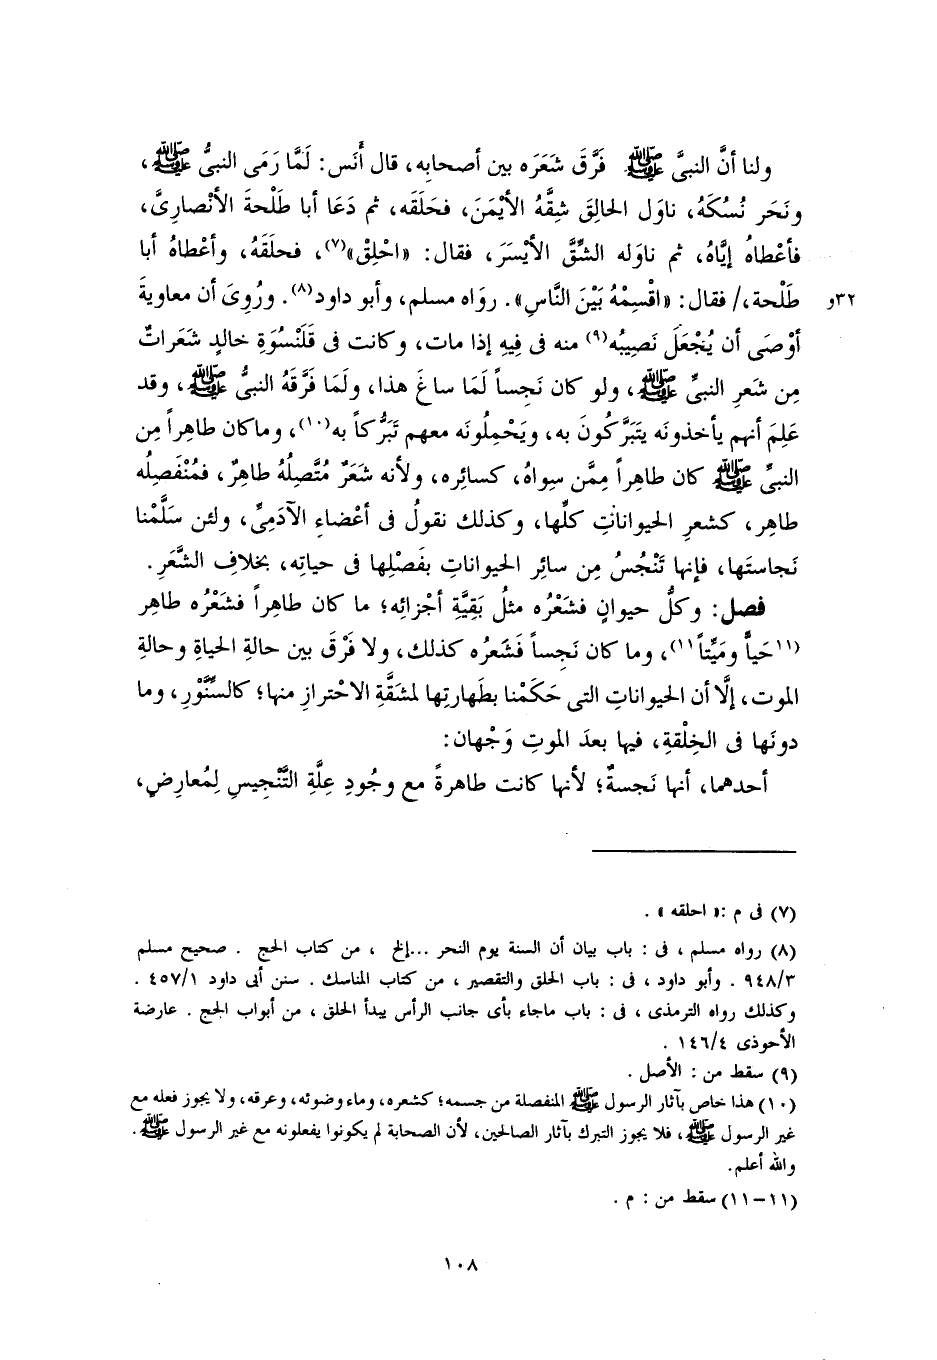 ولنا أنَّ النبىَّ ﷺ فَرَّقَ شَعَرَه بين أصحابِه، قال أَنَس: لَمَّا رَمَى النبىُّ ﷺ،
ونَحَر نُسُكَهُ، ناوَل الحالِقَ شِقَّهُ الأيْمَنَ، فحَلَقَه، ثم دَعَا أبا طَلْحةَ الأنْصارِىَّ،
فأعْطاهُ إيَّاهُ، ثم ناوَله الشِّقَّ الأيْسَرَ، فقال: «احْلِقْ»(٧)، فحلَقَهُ، وأعْطاهُ أبا
٣٢و طَلْحة،/ فقال: «اقْسِمْهُ بَيْنَ النَّاسِ». روَاه مسلم، وأبو داود(٨). ورُوِىَ أن معاويةَ
أوْصَى أن يُجْعَلَ نَصِيبُه(٩) منه فى فِيهِ إذا مات، وكانت فى قَلَنْسُوَةِ خالدٍ شَعَراتٌ
مِن شَعرِ النبىِّ ﷺ، ولو كان نَجِساً لَمَا ساغَ هذا، ولَمَا فَرَّقَهُ النبىُّ ﷺ، وقد
عَلِمَ أنهم يأخذونَه يتَبَرَّكُونَ به، ويَحْمِلُونَه معهم تَبَرُّكاً به(١٠)، وماكان طاهِراً مِن
النبىِّ ﷺ كان طاهِراً مِمَّن سِواهُ، كسائِره، ولأنه شَعَرٌ مُتَّصِلُهُ طاهِرٌ، فمُنْفَصِلُه
طاهِر، كشعرِ الحيواناتِ كلِّها، وكذلك نقولُ فى أعْضاءِ الآدَمِىِّ، ولئن سَلَّمْنا
نَجاستَها، فإنها تَنْجُسُ مِن سائِر الحيواناتِ بفَصْلِها فى حياتِه، بخلافِ الشَّعَرِ.
فصل: وكلُّ حيوانٍ فشَعْرُه مثلُ بَقِيَّةِ أجْزائِه؛ ما كان طاهِراً فشَعْرُه طاهِر
(١١حَياًّ ومَيِّتاً١١)، وما كان نَجِساً فَشَعرُه كذلك، ولا فَرْقَ بين حالةِ الحياةِ وحالةِ
الموت، إلَّا أن الحيواناتِ التى حَكَمْنا بطَهارتِها لمشَقَّةِ الاحْترازِ منها؛ كالسِّنَّوْرِ، وما
دونَها فى الخِلْقةِ، فيها بعدَ الموتِ وَجْهان:
أحدهما، أنها نَجسةٌ؛ لأنها كانت طاهرةً مع وجُودِ عِلَّةِ التَّنْجيسِ لِمُعارِضٍ،
(٧) فى م :« احلقه » .
(٨) رواه مسلم ، فى : باب بيان أن السنة يوم النحر ...إلخ ، من كتاب الحج . صحيح مسلم
٩٤٨/٣ . وأبو داود ، فى : باب الحلق والتقصير ، من كتاب المناسك . سنن أبى داود ٤٥٧/١ .
وكذلك رواه الترمذى ، فى : باب ماجاء بأى جانب الرأس يبدأ الحلق ، من أبواب الحج . عارضة
الأحوذى ١٤٦/٤ .
(٩) سقط من : الأصل .
(١٠) هذا خاص بآثار الرسول ﷺ المنفصلة من جسمه؛ كشعره، وماء وضوئه، وعرقه، ولا يجوز فعله مع
غير الرسول ﷺ، فلا يجوز التبرك بآثار الصالحين، لأن الصحابة لم يكونوا يفعلونه مع غير الرسول ﷺ.
والله أعلم.
(١١–١١) سقط من : م .
١٠٨